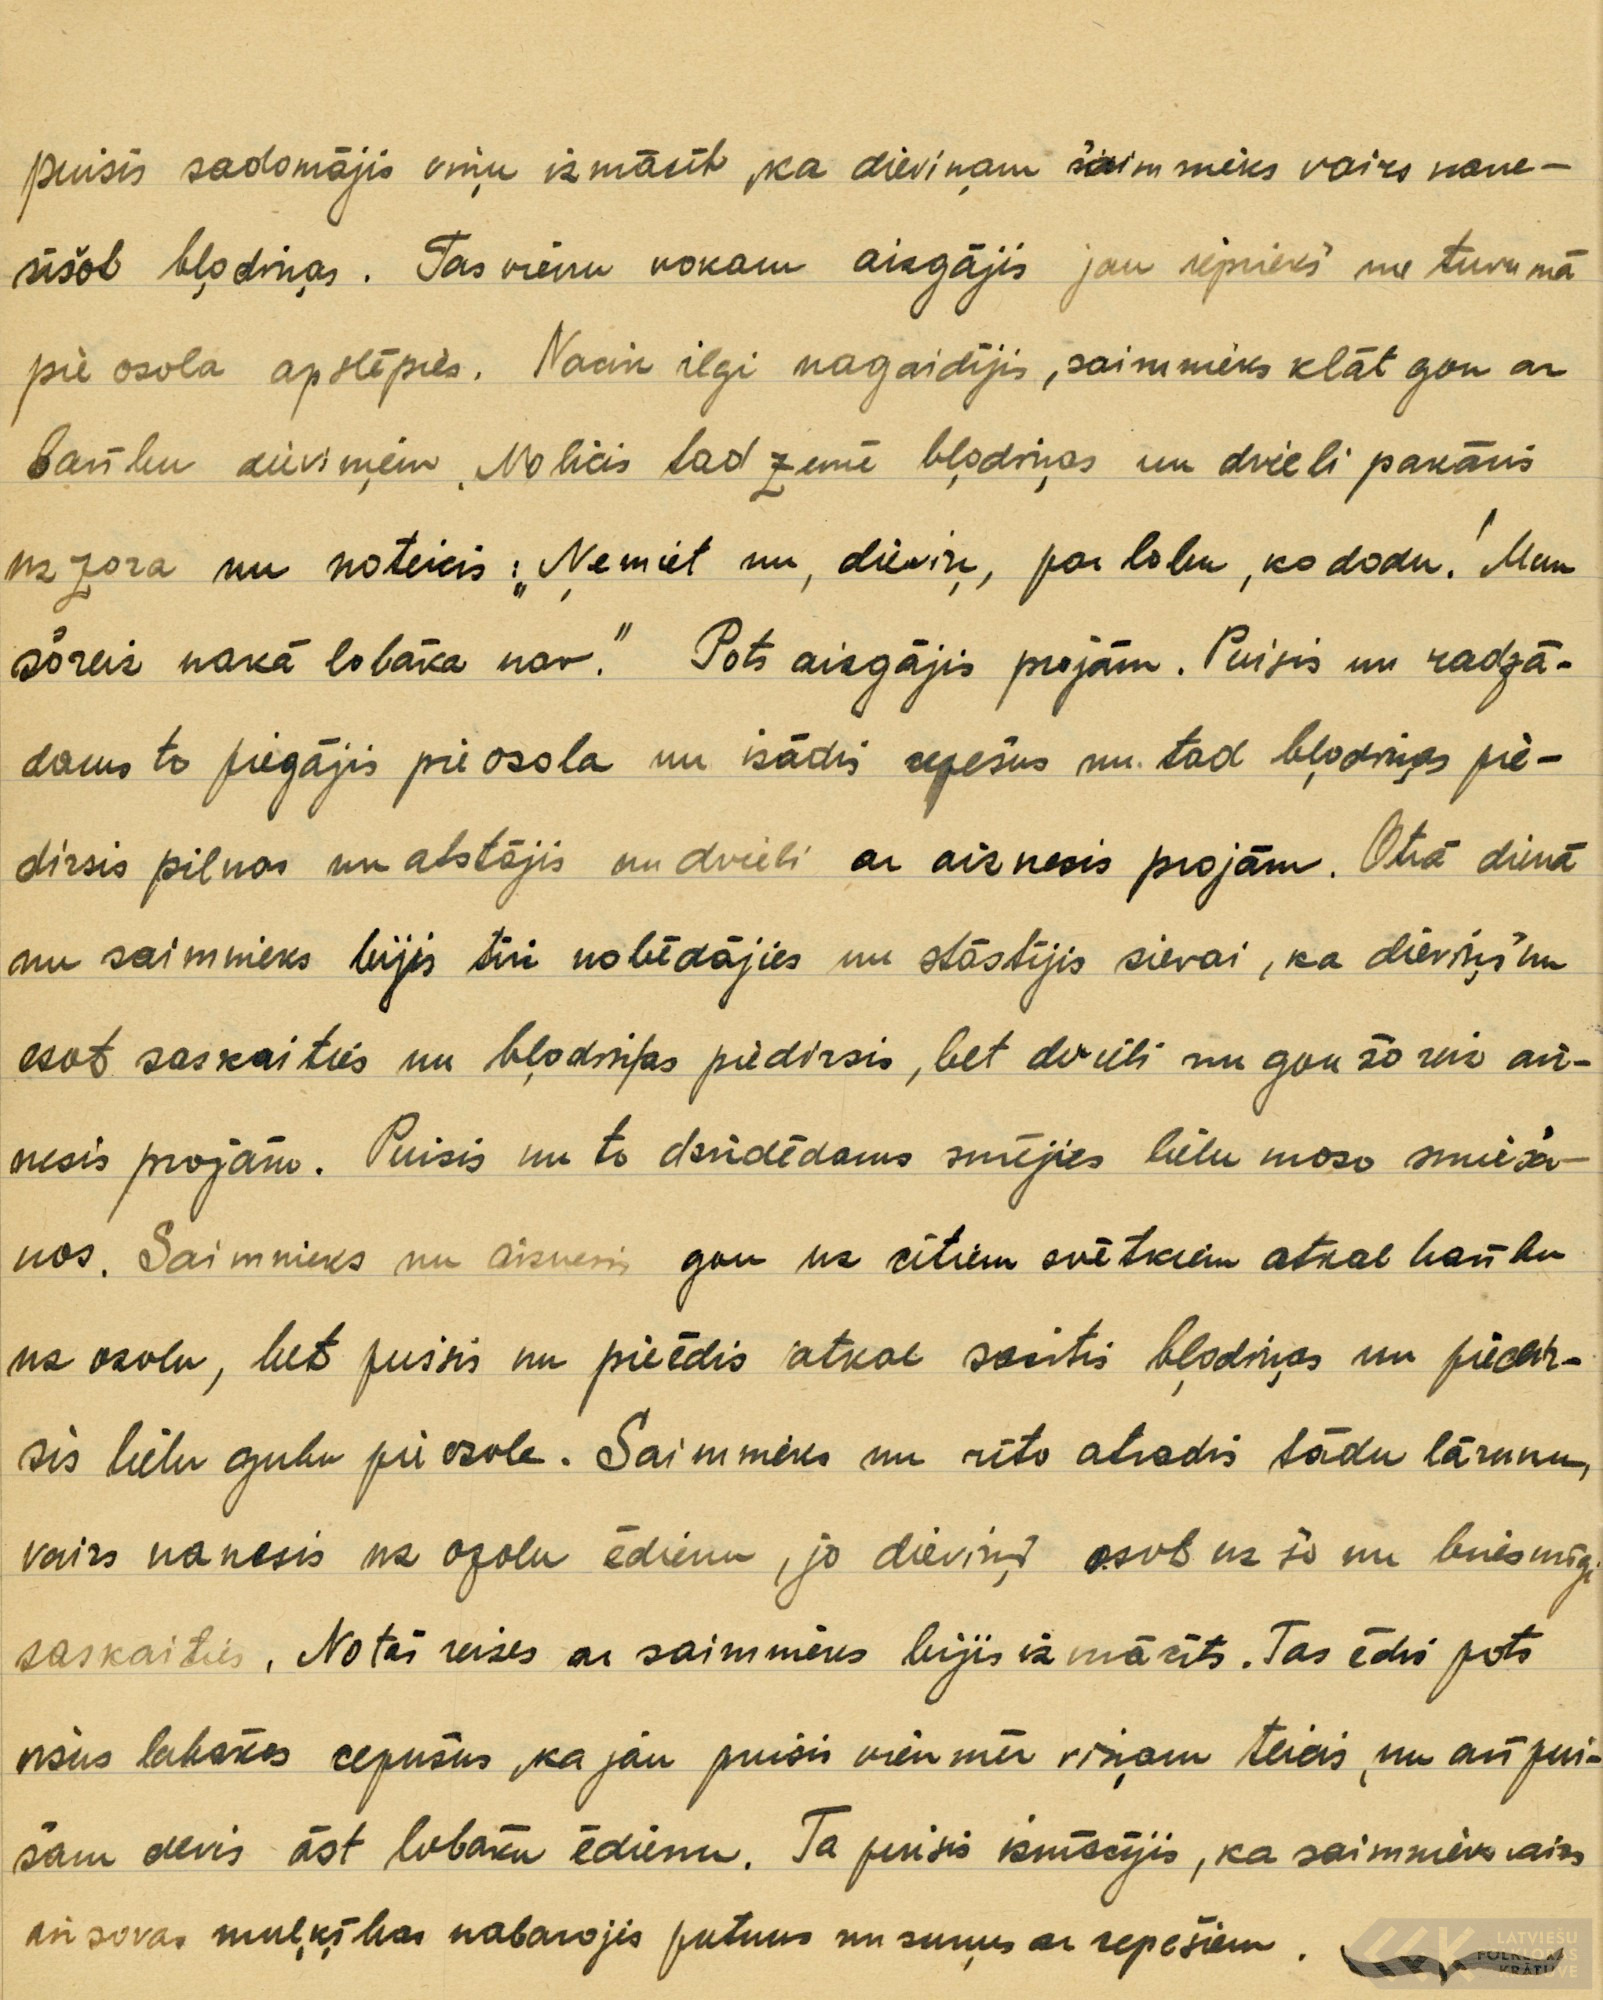 puisis sadomājis viņu izmācīt, ka dieviņam saimnieks vairs nane-
sīšot bļodiņas. Tas vienu vokaru aizgājis jau iepriekš nu tuvumā
pie osola apslēpies. Nacik ilgi nagaidījis, saimnieks klāt gon ar
bańku dieviņiem. Nolicis tad zemē bļodiņas un dvieli pakāris
uz zora nu noteicis: „Ņemiet nu, dieviņ, par lobu, ko dodu! Mun
šoreiz nakā lobāka nav." Pots aizgājis projām. Puisis nu radzā-
dams to piegājis pie osola nu izādis cepešus nu tad bļodiņas pie-
dirsis pilnas nu atstājis nu dvieli ar aiznesis projām. Otrā dienā
nu saimnieks bijis tīri nobēdājies nu stāstījis sievai, ka dieviņš nu
esot saskaities nu bļodiņas piedirsis, bet dvieli nu gon šoreiz aiz-
nesis projām. Puisis nu to dzridēdams smējies lielu moso smiešo-
nos. Saimnieks nu aiznesis gon uz citiem svētkiem atkal bańku
uz osolu, bet puisis nu pieēdis atkal saitis bļodiņas nu piedir-
sis lielu gubu pie osola. Saimnieks nu rīto atradis tādu lārumu,
vairs nanesis uz ozolu ēdienu, jo dieviņš osot uz šo nu briesmīgi
saskaities. No tās reizes ar saimnieks bijis izmācīts. Tas ēdis pots
visus labākos cepušus, ka jau puisis vienmēr viņam teicis, nu arī pui-
šam devis āst lobāku ēdienu. Ta puisis izmācījis, ka saimnieks vairs
ar sovas muļķības nabarojis putnus nu suņus ar cepešiem.
LATVIEŠU
FOLKLORAS
KRĀTUVE